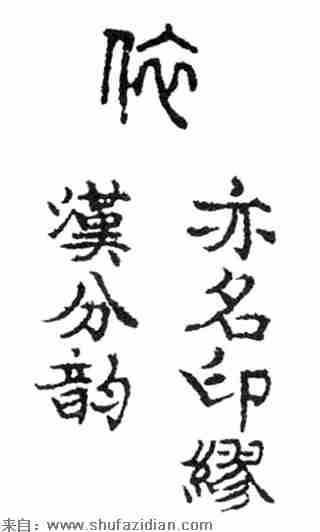 依
亦名印繆
漢分韵
来自：www.shufazidian.com